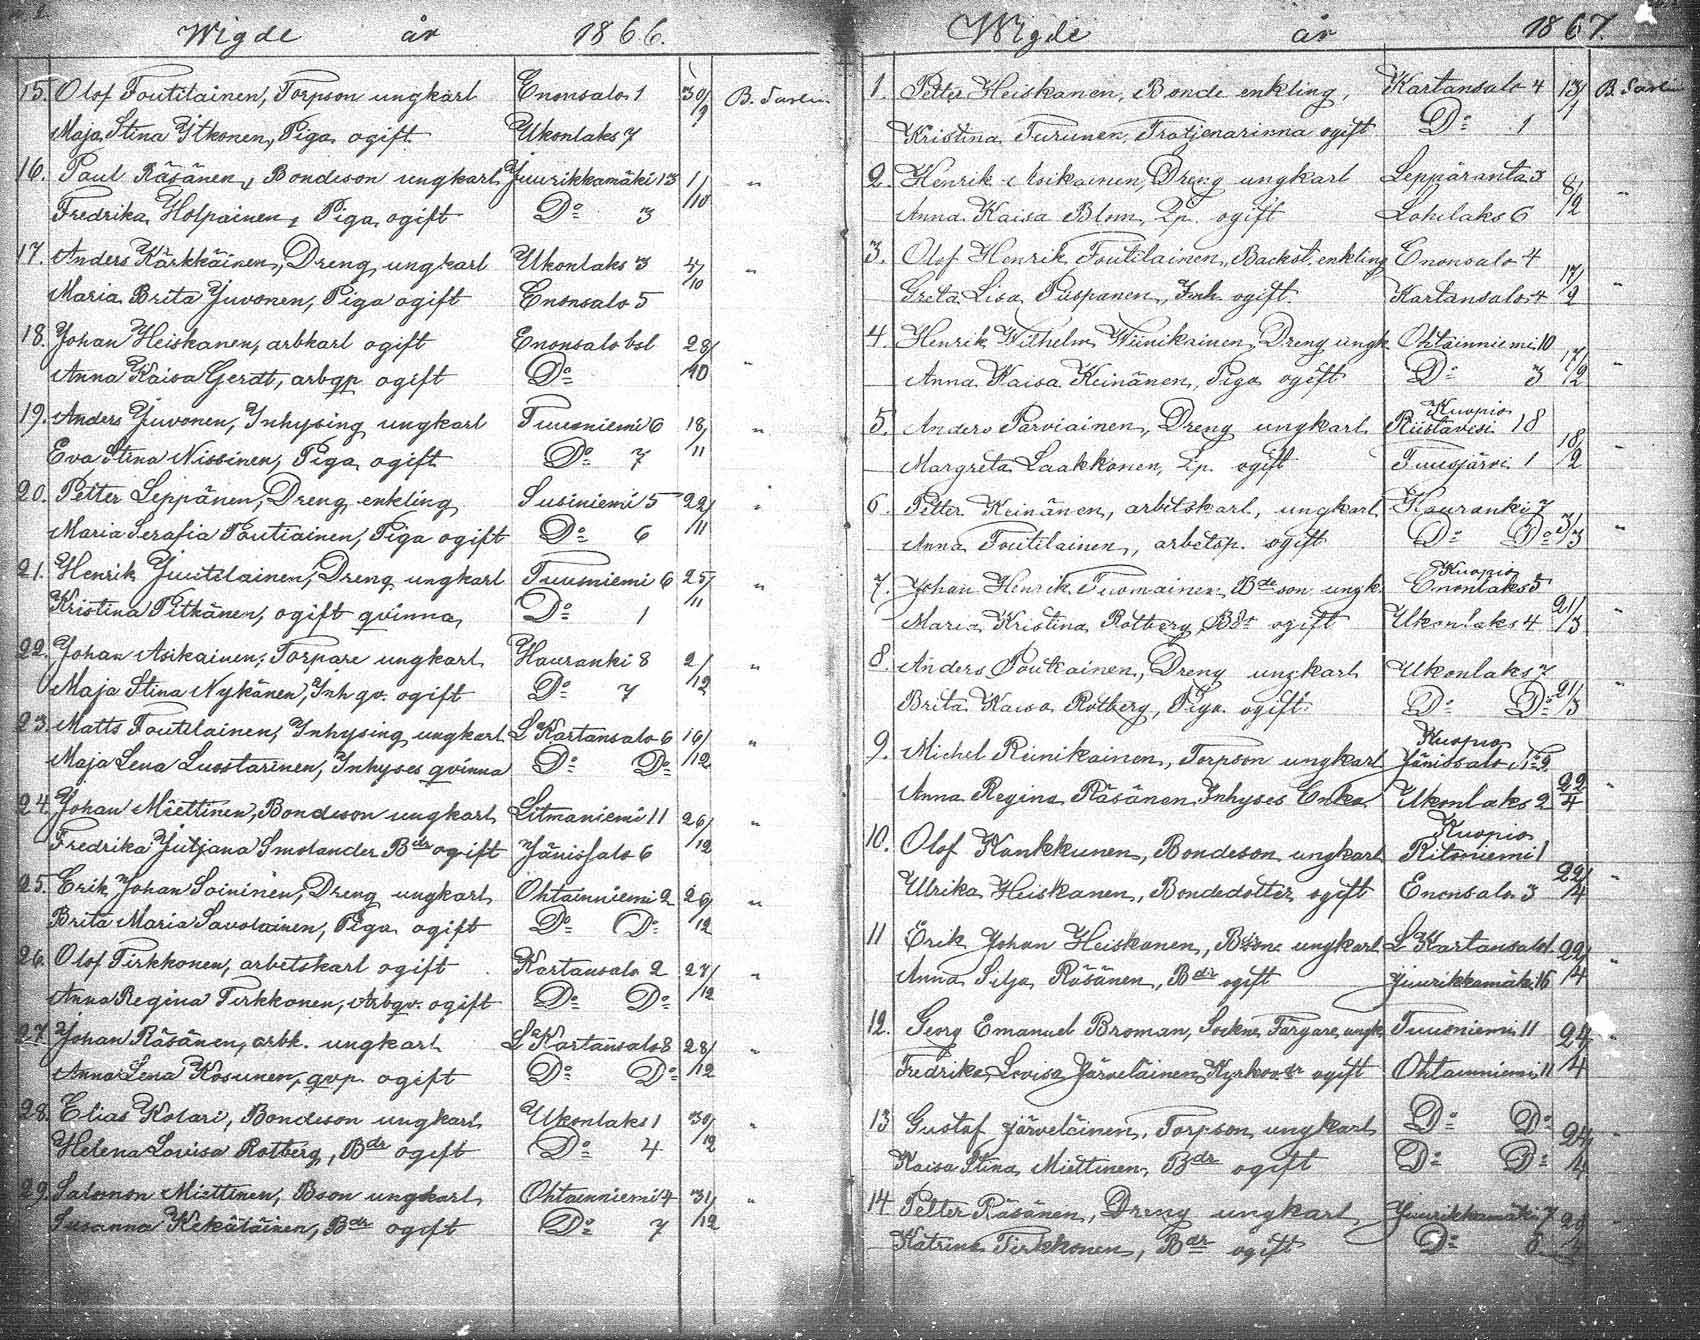 Wigde år 1866.
15. Olof Poutilainen, Torpson ungkarl Enonsalo 1 30/9 B. Sarlin
Maja Stina Ytkonen, Piga ogift Ukonlaks 7
16. Paul Räsänen, Bondeson ungkarl Juurikkamäki 13 1/10 "
Fredrika Holpainen, Piga ogift Do 3
17. Anders Kärkkäinen, Dreng ungkarl Ukonlaks 3 /10 "
Maria Brita Juvonen, Piga ogift Enonsalo 5
18. Johan Heiskanen, arbkarl ogift Enonsalo bsl 28/10 "
Anna Kaisa Gerdt, arbqp ogift Do
19. Anders Juvonen, Inhysing ungkarl Tuusniemi 6 18/11 "
Eva Stina Nissinen, Piga ogift Do 7
20. Petter Leppänen, Dreng enkling Susiniemi 5 22/11 "
Maria Serafia Poutiainen, Piga ogift Do 6
21. Henrik Juutilainen, Dreng ungkarl Tuusniemi 6 25/11 "
Kristina Pitkänen, ogift qvinna Do 1
22. Johan Asikainen, Torpare ungkarl Hauranki 8 2/12 "
Maja Stina Nykänen, Inh qv. ogift Do 7
23. Matts Poutilainen, Inhysing ungkarl La Kartansalo 6 16/12 "
Maja Lena Luostarinen, Inhyses qvinna Do Do
24. Johan Miettinen, Bondeson ungkarl Litmaniemi 11 26/12 "
Fredrika Juljana Smolander Bdr ogift Jänissalo 6
25. Erik Johan Soininen, Dreng ungkarl Ohtaanniemi 2 26/12 "
Brita Maria Savolainen, Piga ogift Do Do
26. Olof Tirkkonen, arbetskarl ogift Kartansalo 2 27/12 "
Anna Regina Tirkkonen, Arbqv. ogift Do Do
27. Johan Räsänen, arbk. ungkarl La Kartansalo 8 28/12 "
Anna Lena Kosunen, qvp. ogift Do Do
28. Elias Kolari, Bondeson ungkarl Ukonlaks 1 30/12 "
Helena Lovisa Rotberg, Bdr ogift Do 4
29. Salomon Miettinen, Bson ungkarl Ohtaanniemi 4 31/12 "
Susanna Kekäläinen, Bdr ogift Do 7
Wigde år 1867.
1. Petter Heiskanen, Bonde enkling, Kartansalo 4 13/1 B. Sarlin
Kristina Turunen, Tratjenarinna ogift Do 1
2. Henrik Asikainen, Dreng ungkarl Leppäranta 3 8/2 "
Anna Kaisa Blom, Lp. ogift Lohilaks 6
3. Olof Henrik Poutilainen, Backst. enkling Enonsalo 4 17/2 "
Greta Lisa Puspanen, Inh. ogift. Kartansalo 4
4. Henrik Wilhelm Wänikainen, Dreng ungk Ohtaanniemi 10 17/2 "
Anna Kaisa Keinänen, Piga ogift Do 3
5. Anders Parviainen, Dreng ungkarl Kuopio Riistavesi 18 18/2 "
Margreta Laakkonen, Lp. ogift Tuusjärvi 1
6. Petter Keinänen, arbetskarl, ungkarl Hauranki 7 3/3 "
Anna Poutilainen, arbetsp. ogift Do Do
7. Johan Henrik Tuomainen Bdeson ungk. Kuopio Enonlaks 5 21/3 "
Maria Kristina Rotberg, Bdr ogift Ukonlaks 4
8. Anders Poutiainen, Dreng ungkarl Ukonlaks 7 21/3 "
Brita Kaisa Rotberg, Piga ogift. Do Do
9. Michel Riinikainen, Torpson ungkarl Kuopio Jänissalo No 2 22/4 "
Anna Regina Räsänen Inhyses Enka Ukonlaks 2
10. Olof Kankkunen, Bondeson ungkarl Kuopio Ritoniemi 1 22/4 "
Ulrika Heiskanen, Bondedotter ogift Enonsalo 3
11 Erik Johan Heiskanen, Bson ungkarl La Kartansalo 1 22/4 "
Anna Silja Räsänen, Bdr ogift Juurikkamäki 16
12. Georg Emanuel Broman, Sockne Färgare ungk Tuusniemi 11 24/4 "
Fredrika Lovisa Järveläinen, Kyrkovdr ogift Ohtaanniemi 11
13 Gustaf Järveläinen, Torpson ungkarl Do Do 24/4 "
Kaisa Stina Miettinen, Bdr ogift Do Do
14. Petter Räsänen, Dreng ungkarl Juurikkamäki 7 28/4 "
Katrina Tirkkonen, Bdr ogift Do